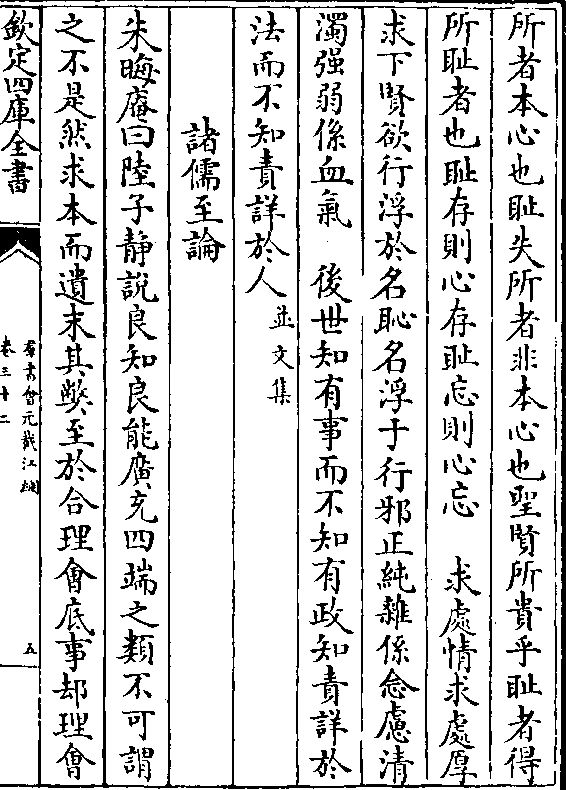 所者本心也耻失所者非本心也聖賢所貴乎耻者得
所耻者也耻存則心存耻忘則心忘　求處情求處厚
求下賢欲行浮於名恥名浮于行邪正純雜係念慮清
濁强弱係血氣　後世知有事而不知有政知責詳於
法而不知責詳於人並文集
諸儒至論
朱晦庵曰陸子静說良知良能廣充四端之類不可謂
之不是然求本而遺末其弊至於合理會底事却理會
欽定四庫全書
羣書會元截江網
卷三十二
五